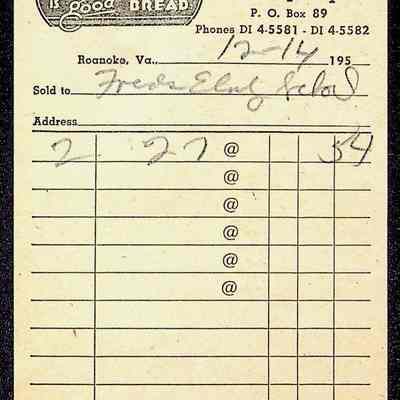 is good BREAD
P. O. Box 89
Phones DI 4-5581 - DI 4-5582
Roanoke, Va., 12-14 195
Sold to
Address
2 27 @ 54
@
@
@
@
@